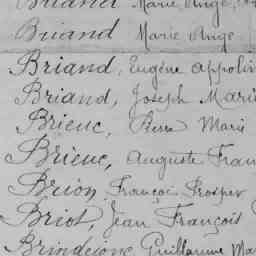 Briand Marie Ange,
Briand Marie Ange
Briand, Eugène Appoliv
Briand, Joseph Marie
Brieuc, Pierre Marie
Brieuc, Auguste Fran
Brion, François Prosper
Briot, Jean François
Brindejonc Guillaume Ma